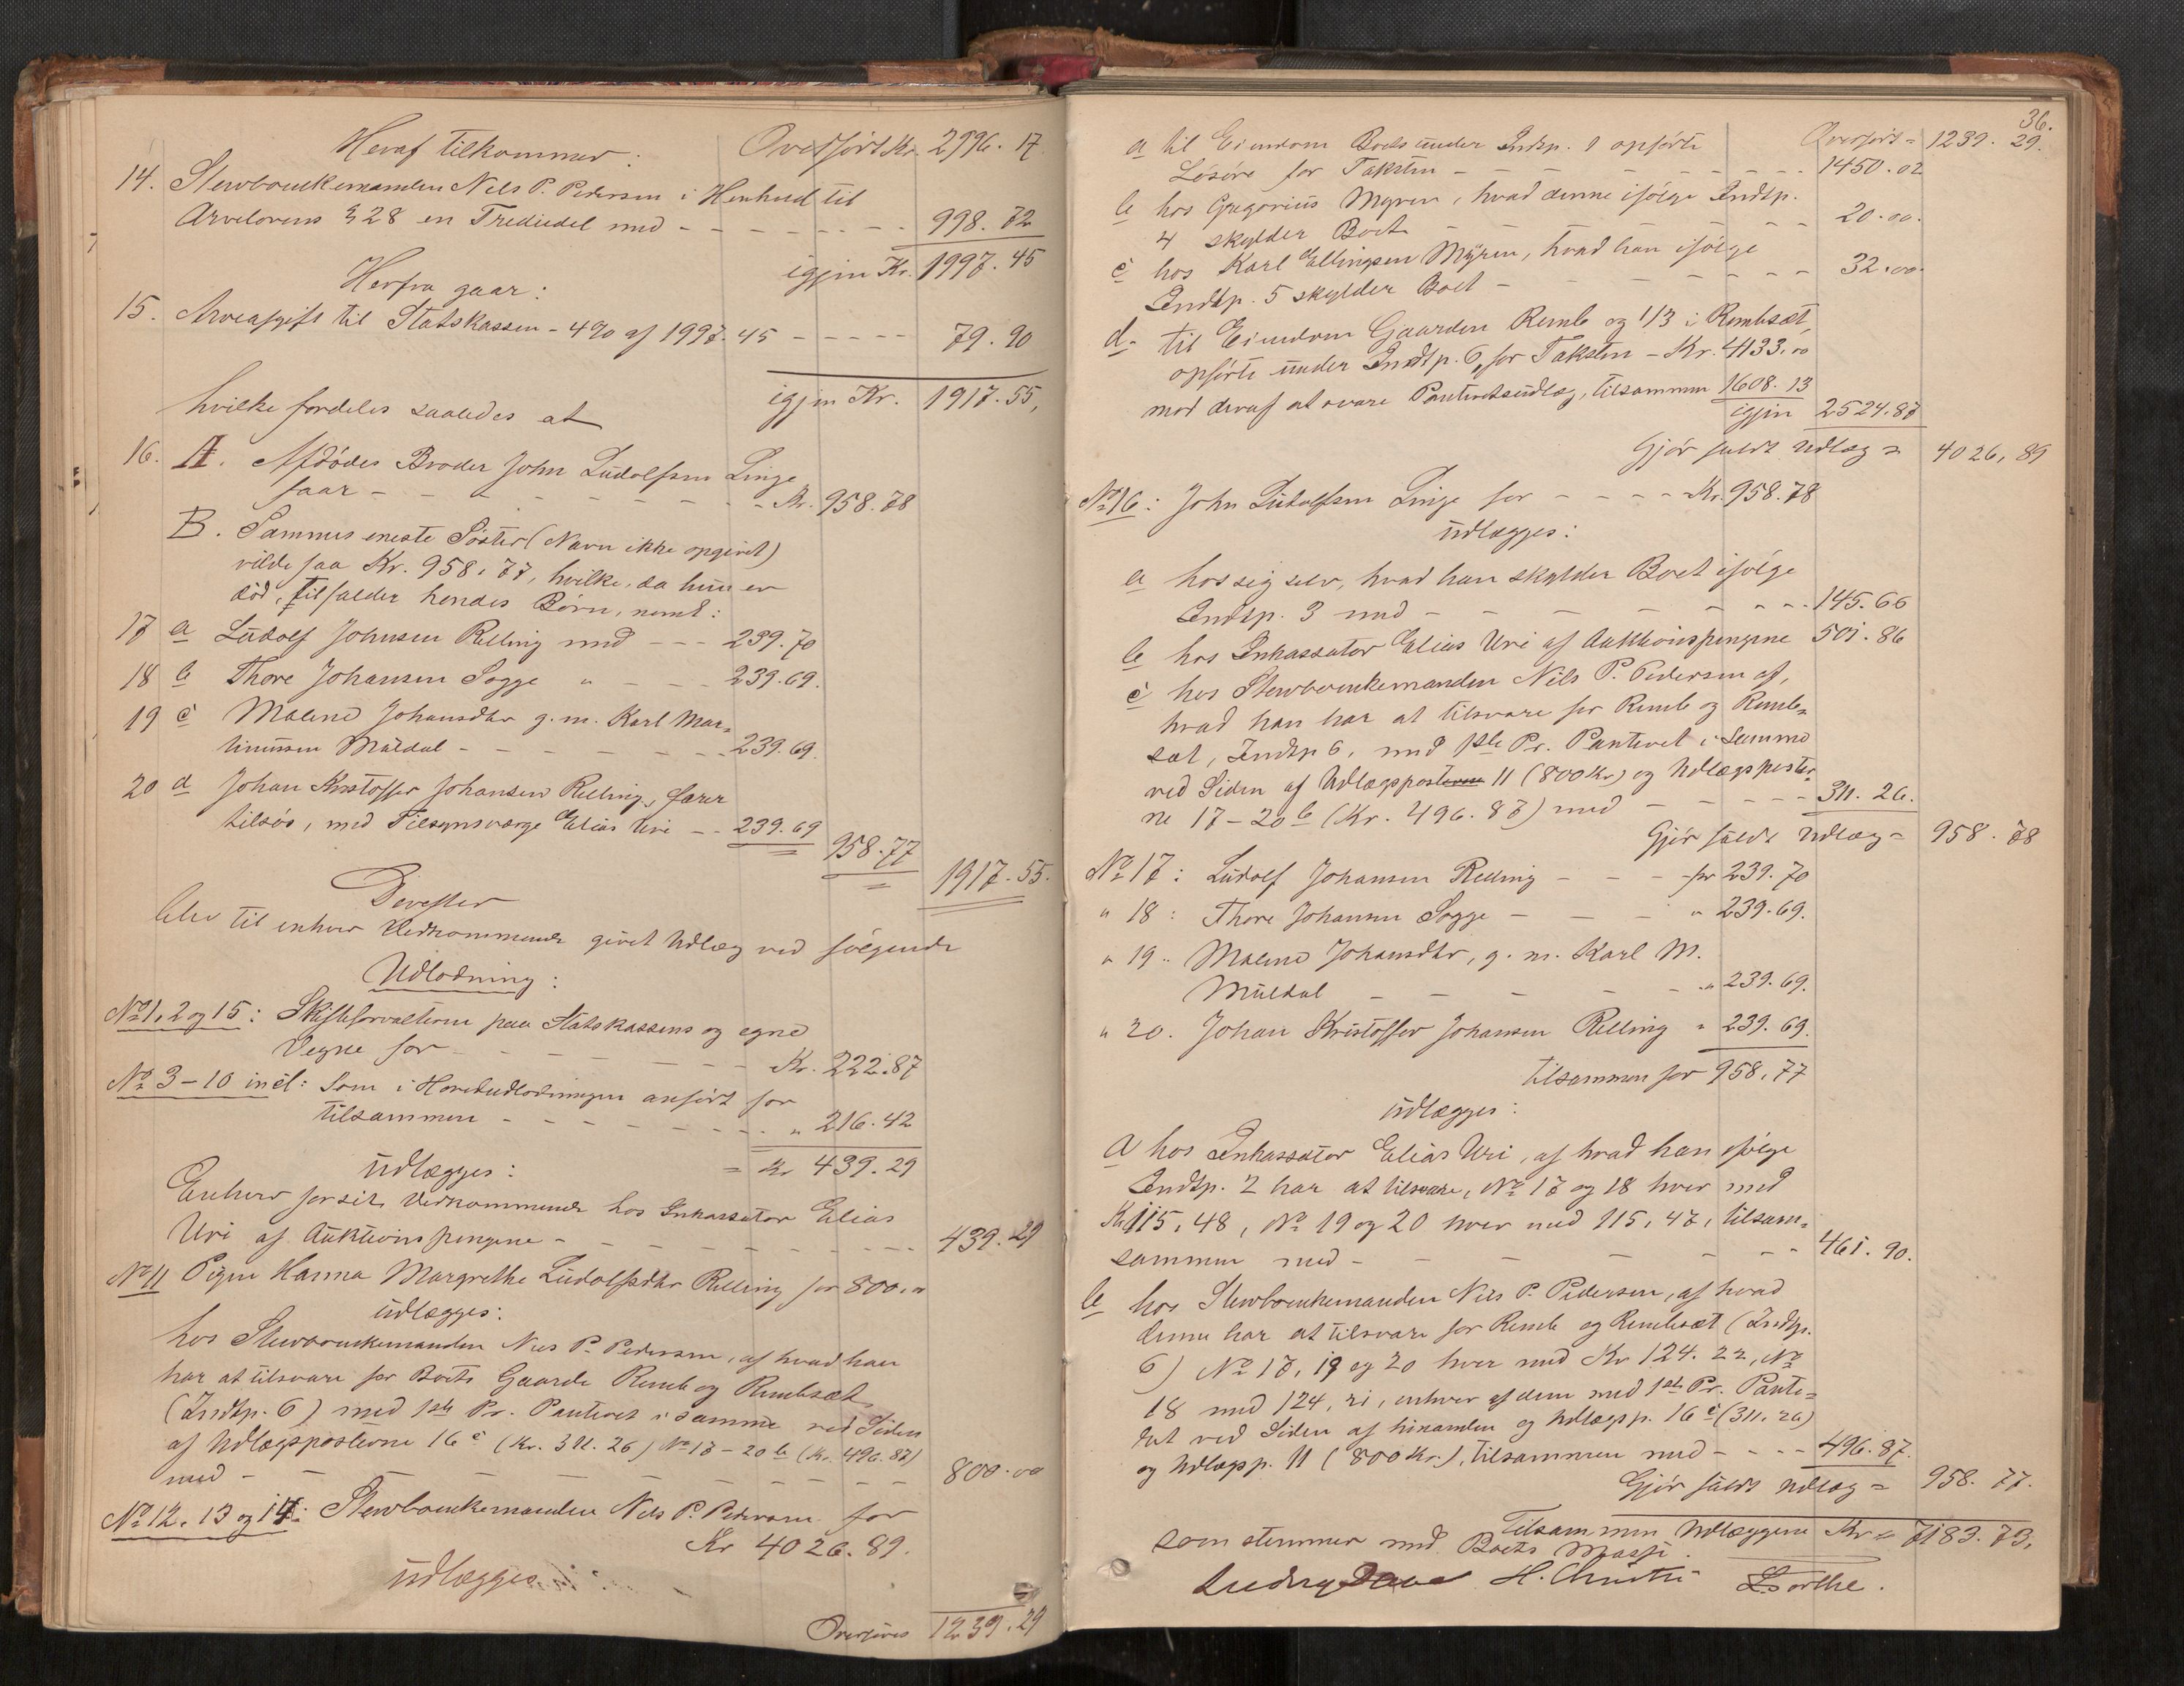 Heraf tilkommer: Overført Kr. 2996.17
14. Sterbøenkemanden Nils P. Pedersen i Henhud til
Arvelovens § 28 en Trediedel med - - - 998.72
igjen Kr. 1997.45
Herfra gaar:
15. Arveafgift til Statskassen - 4% af 1997.45 - - - 79.90
igjen Kr. 1917.55,
hvilke fordeles saaledes at
16. A. Afdødes Broder John Ludolfsen Linge
faar - - - Kr. 958.78
B. Sammes eneste Søster (Navn ikke opgivet)
vilde faa Kr. 958.77, hvilke, da hun er
død, tilfalder hendes Børn, neml:
17 a Ludolf Johnsen Relling med - - - 239.70
18 b Thore Johansen Sogge " - - - 239.69.
19 c Malene Johansdtr g.m. Karl Mar=
tinussen Muldal - - - 239.69.
20 d Johan Kristoffer Johansen Relling, farer
tilsøs, med Tilsynsværge Elias Uri - - 239.69
958.77
1917.55.
Derefter
blev til enhver Vedkommende givet Udlæg ved følgende
Udlodning:
No 1, 2 og 15: Skifteforvalteren paa Statskassens og egne
Vegne for - - - Kr. 222.87
No 3-10 incl: Som i Hovedudlodningen anført for
tilsammen - - - " 216.42
= Kr 439.29
udlægges:
Enhver for sit Vedkommende hos Inkassator Elias
Uri af Auktionspengene - - - 439.29
No 11 Pigen Hanna Margrethe Ludolfsdtr Relling for 800.00
udlægges:
hos Sterbøenkemanden Nils P. Pedersen, af hvad han
har at tilsvare for Boets Gaarde Remb og Rembsæt
(Indtp. 6) med 1ste Pr. Panteret i samme ved Siden
af Udlægsposterne 16 c (Kr. 311.26) No 17-20 b (Kr. 496.87)
med - - - 800.00
No 12, 13 og 14: Sterbøenkemanden Nils P. Pedersen for
Kr 4026.89.
udlægges
Overføres 1239.29
36.
Overført = 1239.29.
a til Eiendom Boets under Indtp. 1 opførte
Løsøre for Taksten - - - 1450.02
b hos Gregorius Myren, hvad denne ifølge Indtp.
4 skylder Boet - - - 20.00.
c hos Karl Ellingsen Myren, hvad han ifølge
Indtp. 5 skylder Boet - - - 32.00.
d. til Eiendom Gaarden Remb og 1/3 i Rembsæt,
opførte under Indtp. 6, for Taksten - Kr. 4133.00
mod deraf at svare Panteretsudlæg, tilsammen 1608.13
igjen 2524.87
Gjør fuldt Udlæg = 4026,89
No 16: John Ludolfsen Linge for - - - Kr. 958.78
udlægges:
a hos sig selv, hvad han skylder Boet ifølge
Indtp. 3 med - - - 145.66
b hos Inkassator Elias Uri af Auktionspengene 501.86
c hos Sterbøenkemanden Nils P. Pedersen af,
hvad han har at tilsvare for Remb og Remb=
sæt, Indtp 6, med 1ste Pr. Panteret i samme
ved Siden af Udlægsposterne 11 (800 Kr) og Udlægsposter
ne 17-20 b (Kr. 496.87) med - - - 311.26.
Gjør fuldt Udlæg = 958.78
No 17: Ludolf Johansen Relling - - - for 239.70
" 18: Thore Johansen Sogge - - - " 239.69.
" 19.. Malene Johansdtr, g.m. Karl M.
Muldal - - - " 239.69.
" 20. Johan Kristoffer Johansen Relling " 239.69.
tilsammen for 958.77
udlægges:
a hos Inkassator Elias Uri, af hvad han ifølge
Indtp. 2 har at tilsvare, No 17 og 18 hver med
Kr 115,48, No 19 og 20 hver med 115,47, tilsam=
sammen med - - - 461.90.
b hos Sterbøenkemanden Nils P. Pedersen, af hvad
denne har at tilsvare for Remb og Rembsæt (Indtp.
6) No 17, 19 og 20 hver med Kr 124.22, No
18 med 124,21, enhver af dem med 1ste Pr. Pante=
ret ved Siden af hinanden og Udlægsp. 16 c (311.26)
og Udlægsp. 11 (800 Kr.), tilsammen med - - - 496.87.
Gjør fuldt Udlæg = 958.77.
Tilsammen Udlæggene Kr = 7183.73,
som stemmer med Boets Masse.
H. Christie